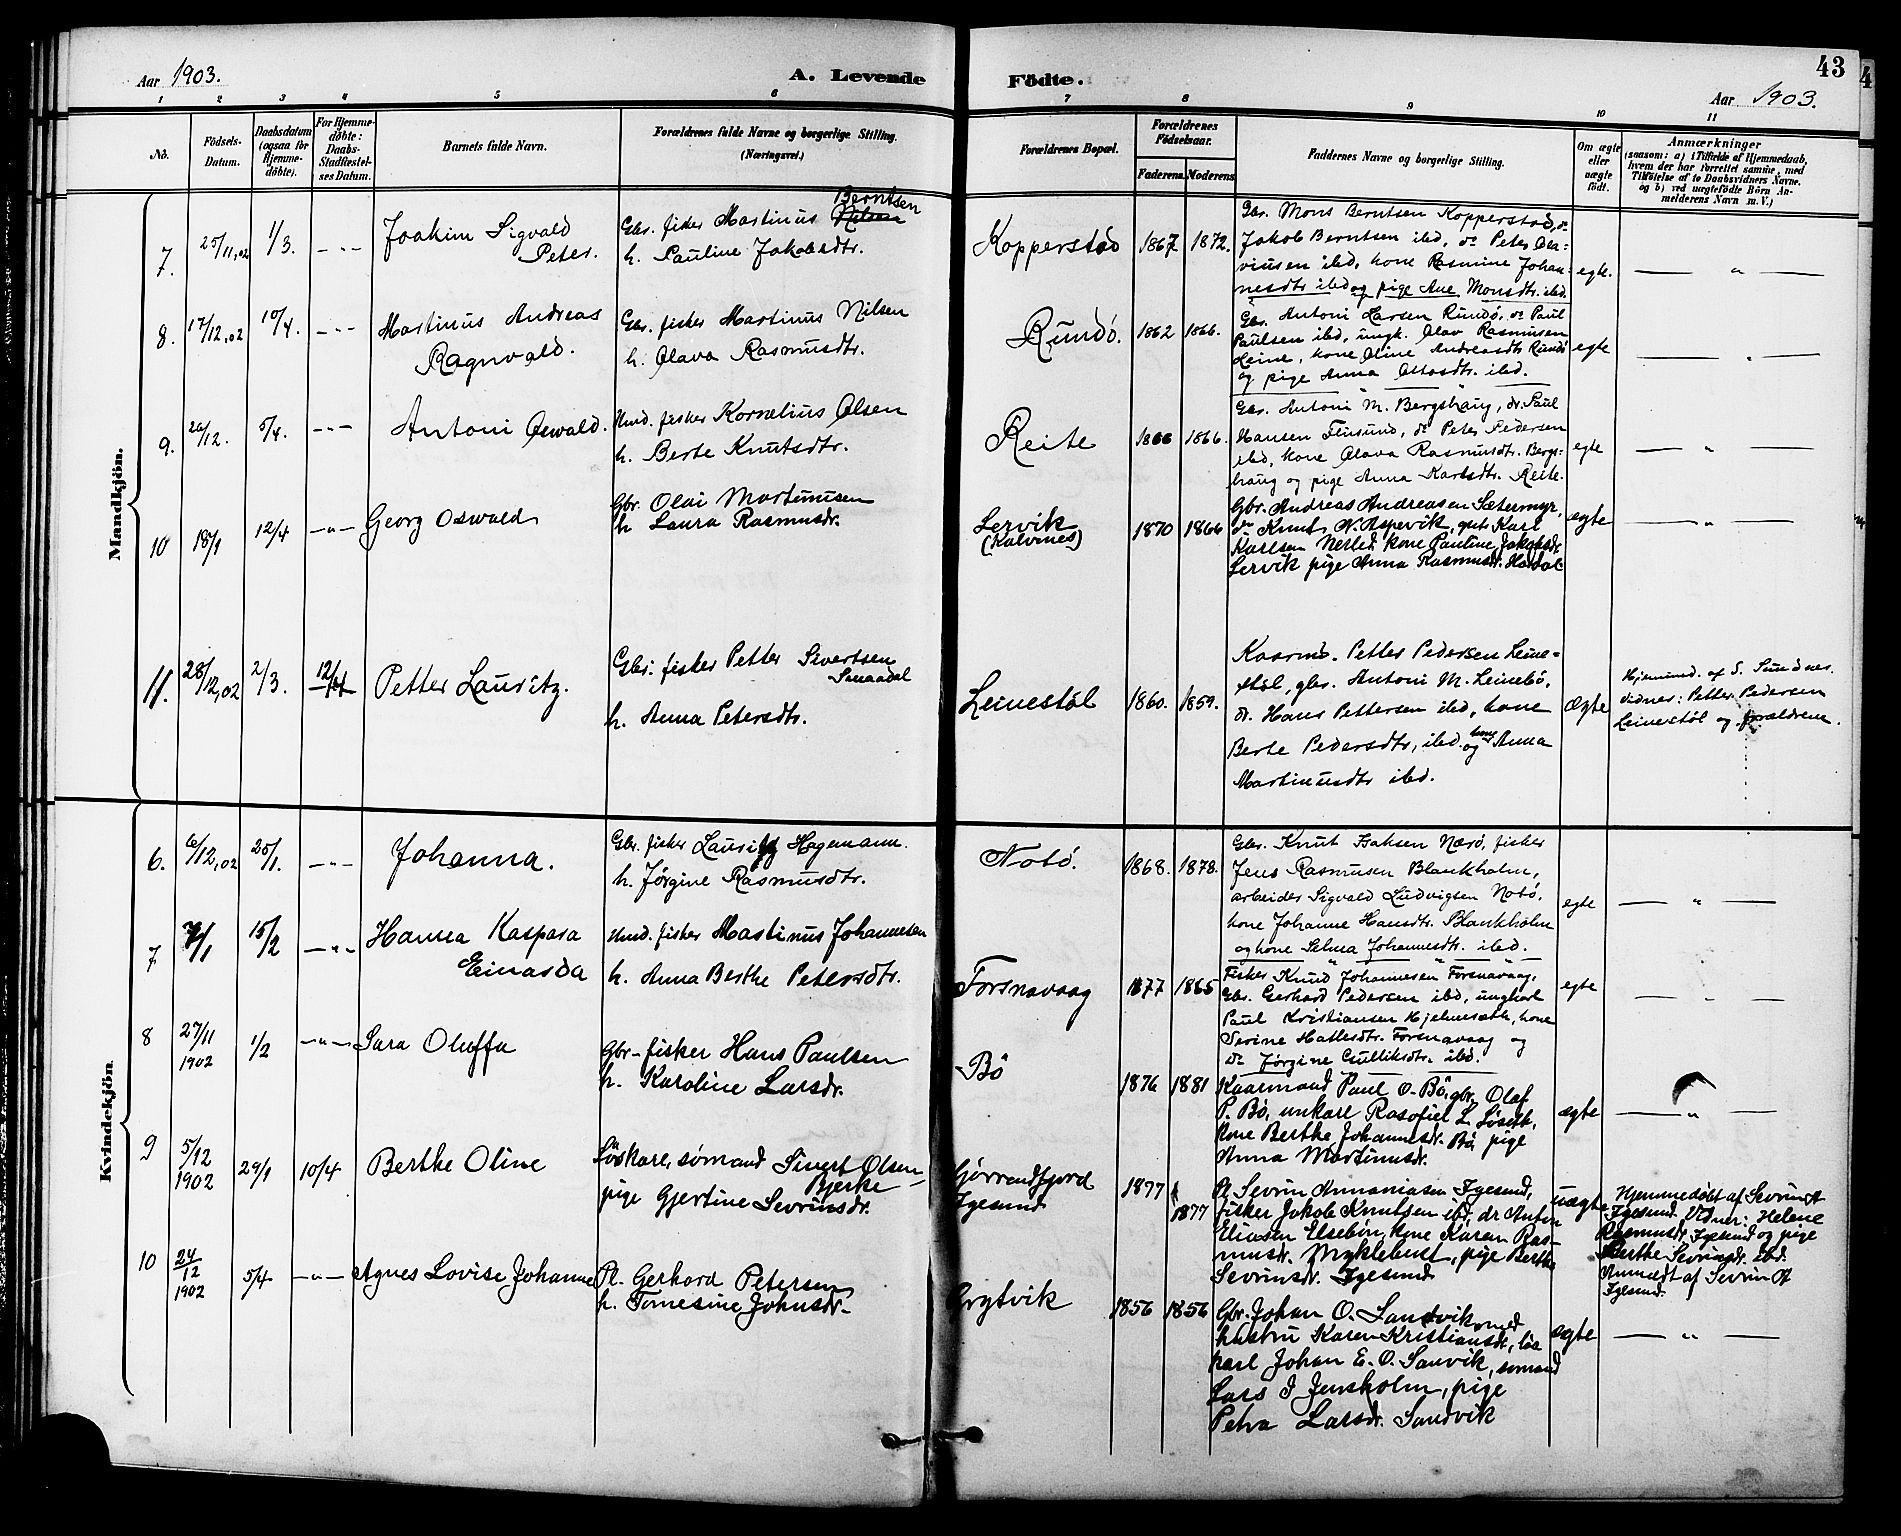 Aar 1903.
A. Levende
Födte.
43
Aar 1903.
1 2 3 4 5 6 7 8 9 10 11
No.
Födsels-
Datum.
Daabsdatum
(ogsaa for
Hjemme-
døbte).
For Hjemme-
døbte:
Daabs-
Stadfæstel-
ses Datum.
Barnets fulde Navn.
Forældrenes fulde Navne og borgerlige Stilling.
(Næringsvei.)
Forældrenes Bopæl.
Forældrenes
Födselsaar.
Faderens. Moderens.
Faddernes Navne og borgerlige Stilling.
Om ægte
eller
uægte
födt.
Anmærkninger
(saasom: a) i Tilfælde af Hjemmedaab,
hvem der har forrettet samme, med
Tilföielse af to Daabsvidners Navne,
og b) ved uægtefödte Börn An-
melderens Navn m. V.)
Mandkjön.
7. 25/11,02 1/3. — " —
Joakim Sigvald
Peter.
Berntsen
Gbr. fisker Martinus Nilsen
h. Pauline Jakobsdtr.
Kopperstad 1867 1872.
Gbr. Mons Berntsen Kopperstad, do
Jakob Berntsen ibd, do Peter Ola-
viusen ibd, kone Rasmine Johan-
nesdtr ibd og pige Ane Monsdtr. ibd.
egte. — " —
8. 17/12,02 10/4. — " —
Martinus Andreas
Ragnvald.
Gbr. fisker Martinus Nilsen
h. Olava Rasmusdtr.
Rundö. 1862 1866.
Gbr. Antoni Larsen Rundö, do Paul
Paulsen ibd, ungk. Olav Rasmusen
Leine, kone Oline Andreasdtr Rundö
og pige Anna Ottosdtr. ibd.
egte — " —
9. 20/12. 5/4. — " —
Antoni Oswald.
Hmd. fisker Kornelius Olsen
h. Berte Knutsdtr.
Reite 1866 1866.
Gbr. Antoni M. Bergshaug, do. Paul
Hansen Flusund, do Peter Pedersen
ibd, kone Olava Rasmusdtr. Bergs-
haug og pige Anna Karlsdtr. Reite.
egte — " —
10 18/1 12/4 — " —
Georg Oswald
Gbr. Olai Martinusen
h. Laura Rasmusdr.
Lervik
(Kalvines)
1870 1866
Gbr. Andreas Andreasen Sætermyr,
do Knut N. Aspevik, gut Karl
Karlsen Nerled, kone Pauline Jakobsdr
Lervik pige Anna Rasmusdr.
ægte — " —
11. 28/12,02 2/3. 12/4
Petter Lauritz.
Gbr. fisker Petter Sivertsen
h. Anna Petersdtr.
Leinestöl 1860. 1859.
Kaarmd. Petter Pedersen Leine-
stöl, gbr. Antoni M. Leinebö,
do. Hans Pettersen ibd, kone
Berte Pedersdtr, ibd. og kone Anna
Martinusdtr ibd.
ægte
Hjemmed. af S.
vidner: Petter Pedersen
Leinestöl og forældrene.
Kvindekjön
6. 6/12,02 25/1. — " —
Johanna.
Gbr. fisker Lauritz Hagemann.
h. Jørgine Rasmusdtr.
Notö. 1868. 1878.
Gbr. Knut Isaksen Nærö, fisker
Jens Rasmusen Blankholm,
arbeider Sigvald Ludvigsen Notö,
kone Johanne Hansdtr. Blankholm
og kone Selma Johannesdtr. ibd.
egte — " —
7 7/1 15/2 — " —
Hanna Kaspara
Einarda
Hmd. fisker Martinus Johannesen
h. Anna Berthe Petersdtr.
Forsnavaag 1877 1865
Fisker Knud Johannesen Forsnavaag,
Gbr. Gerhard Pedersen ibd, ungkarl
Paul Kristiansen Hjelmesæth, kone
Serine Hallesdtr. Forsnavaag og
do Jørgine Gulliksdtr. ibd.
egte — " —
8 27/11
1902
1/2 — " —
Sara Oluffa
Gbr-fisker Hans Paulsen
h. Karoline Larsdr.
Bö 1876 1881
Kaarmand Paul O. Bö, gbr. Olaf
P. Bö, unkarl Rasofiel L. Løseth,
kone Berthe Johannesdr. Bö, pige
Anna Martinusdr.
ægte — " —
9 5/12
1902
29/1 10/4
Berthe Oline
Löskare, sømand Sivert Olsen
Bjerke —
pige Gjertine Sevrinsdr.
Gjörrendfjord
Igesund
1877 1877
Pl. Sevrin Annaniasen Igesund,
fisker Jakob Knutsen ibd, dr Anton
Eliasen Elsebön, kone Karen Ras-
musdr. Myklebust, pige Berthe
Sevrinsdr. Igesund
uægte
Hjemmedøbt af Sevrin A
Igesund. Vidner: Helene
Rasmusdr. Igesund og pige
Berthe Sevrinsdr. ibd.
Anmeldt af Sevrin A
Igesund.
10 24/12
1902
5/4 — " —
Agnes Lovise Johanne
Pl. Gerhard Petersen
h. Tomesine Johnsdr.
Grytvik 1856 1856
Gbr. Johan O. Sandvik med
hustru Karen Kristiansdr, løs
karl Johan E. O. Sanvik, sømand
Lars J Jensholm, pige
Petra Larsdr. Sandvik
ægte — " —